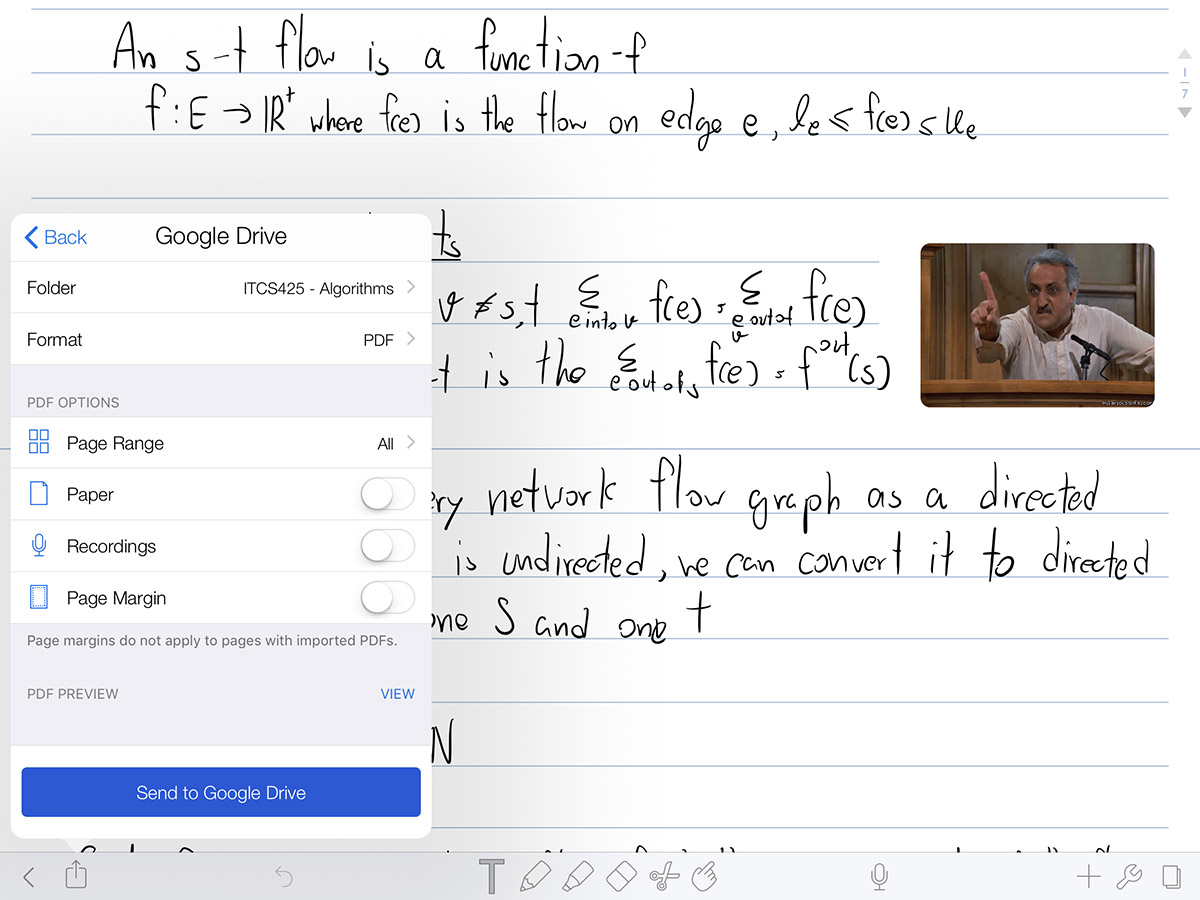 An s-t flow is a function -f
f: E → IR⁺ where f(e) is the flow on edge e, le ≤ f(e) ≤ ue
1
7
ts
v ≠ s,t Σ e into v f(e) = Σ e out of v f(e)
t is the Σ e out of s f(e) = f^out(s)
ery network flow graph as a directed
is undirected, we can convert it to directed
one S and one t
N
Back
Google Drive
Folder ITCS425 - Algorithms
Format PDF
PDF OPTIONS
Page Range All
Paper
Recordings
Page Margin
Page margins do not apply to pages with imported PDFs.
PDF PREVIEW VIEW
Send to Google Drive
T